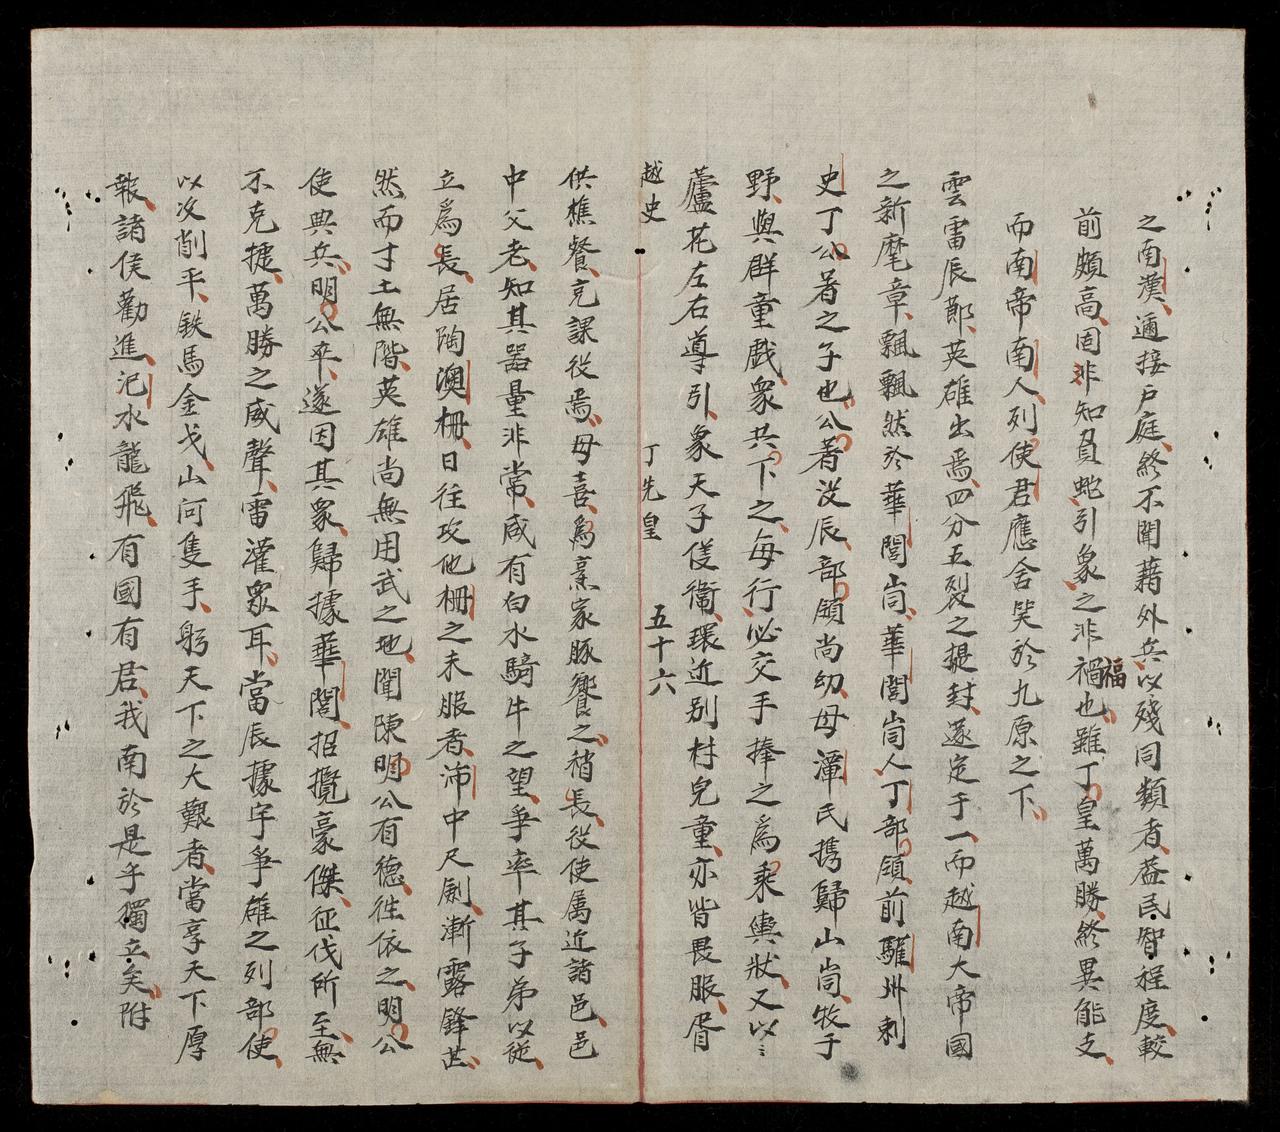 之南漢邇接戶庭終不聞藉外兵以殘同類者葢民智程度較
前頗高固非知負蛇引象之非禍福也雖丁皇萬勝終異能支
而南帝南人列使君應含笑於九原之下
雲雷辰節英雄出焉四分五裂之提封遂定于一而越南大帝國
之新麾章飄飄然於華閭峝華閭峝人丁部領前驩州刺
史丁公著之子也公著沒辰部領尚幼母潭氏携歸山峝牧于
野與群童戲衆共下之每行必交手捧之爲乘輿狀又以〻
蘆花左右導引象天子儀衛環近別村兒童亦皆畏服胥
越史 丁先皇 五十六
供樵餐充課役焉母喜爲烹家豚饗之稍長役使属近諸邑邑
中父老知其器量非常咸有白水騎牛之望爭率其子弟以從
立爲長居陶澳栅日往攻他栅之未服者沛中尺劍漸露鋒芒
然而寸土無階英雄尚無用武之地聞陳明公有德往依之明公
使典兵明公卒遂因其衆歸據華閭招攬豪傑征伐所至無
不克捷萬勝之威聲雷灌衆耳當辰據宇爭雄之列部使
以次削平鉄馬金戈山河隻手躬天下之大艱者當享天下厚
報諸侯勸進汜水龍飛有國有君我南於是乎獨立矣附